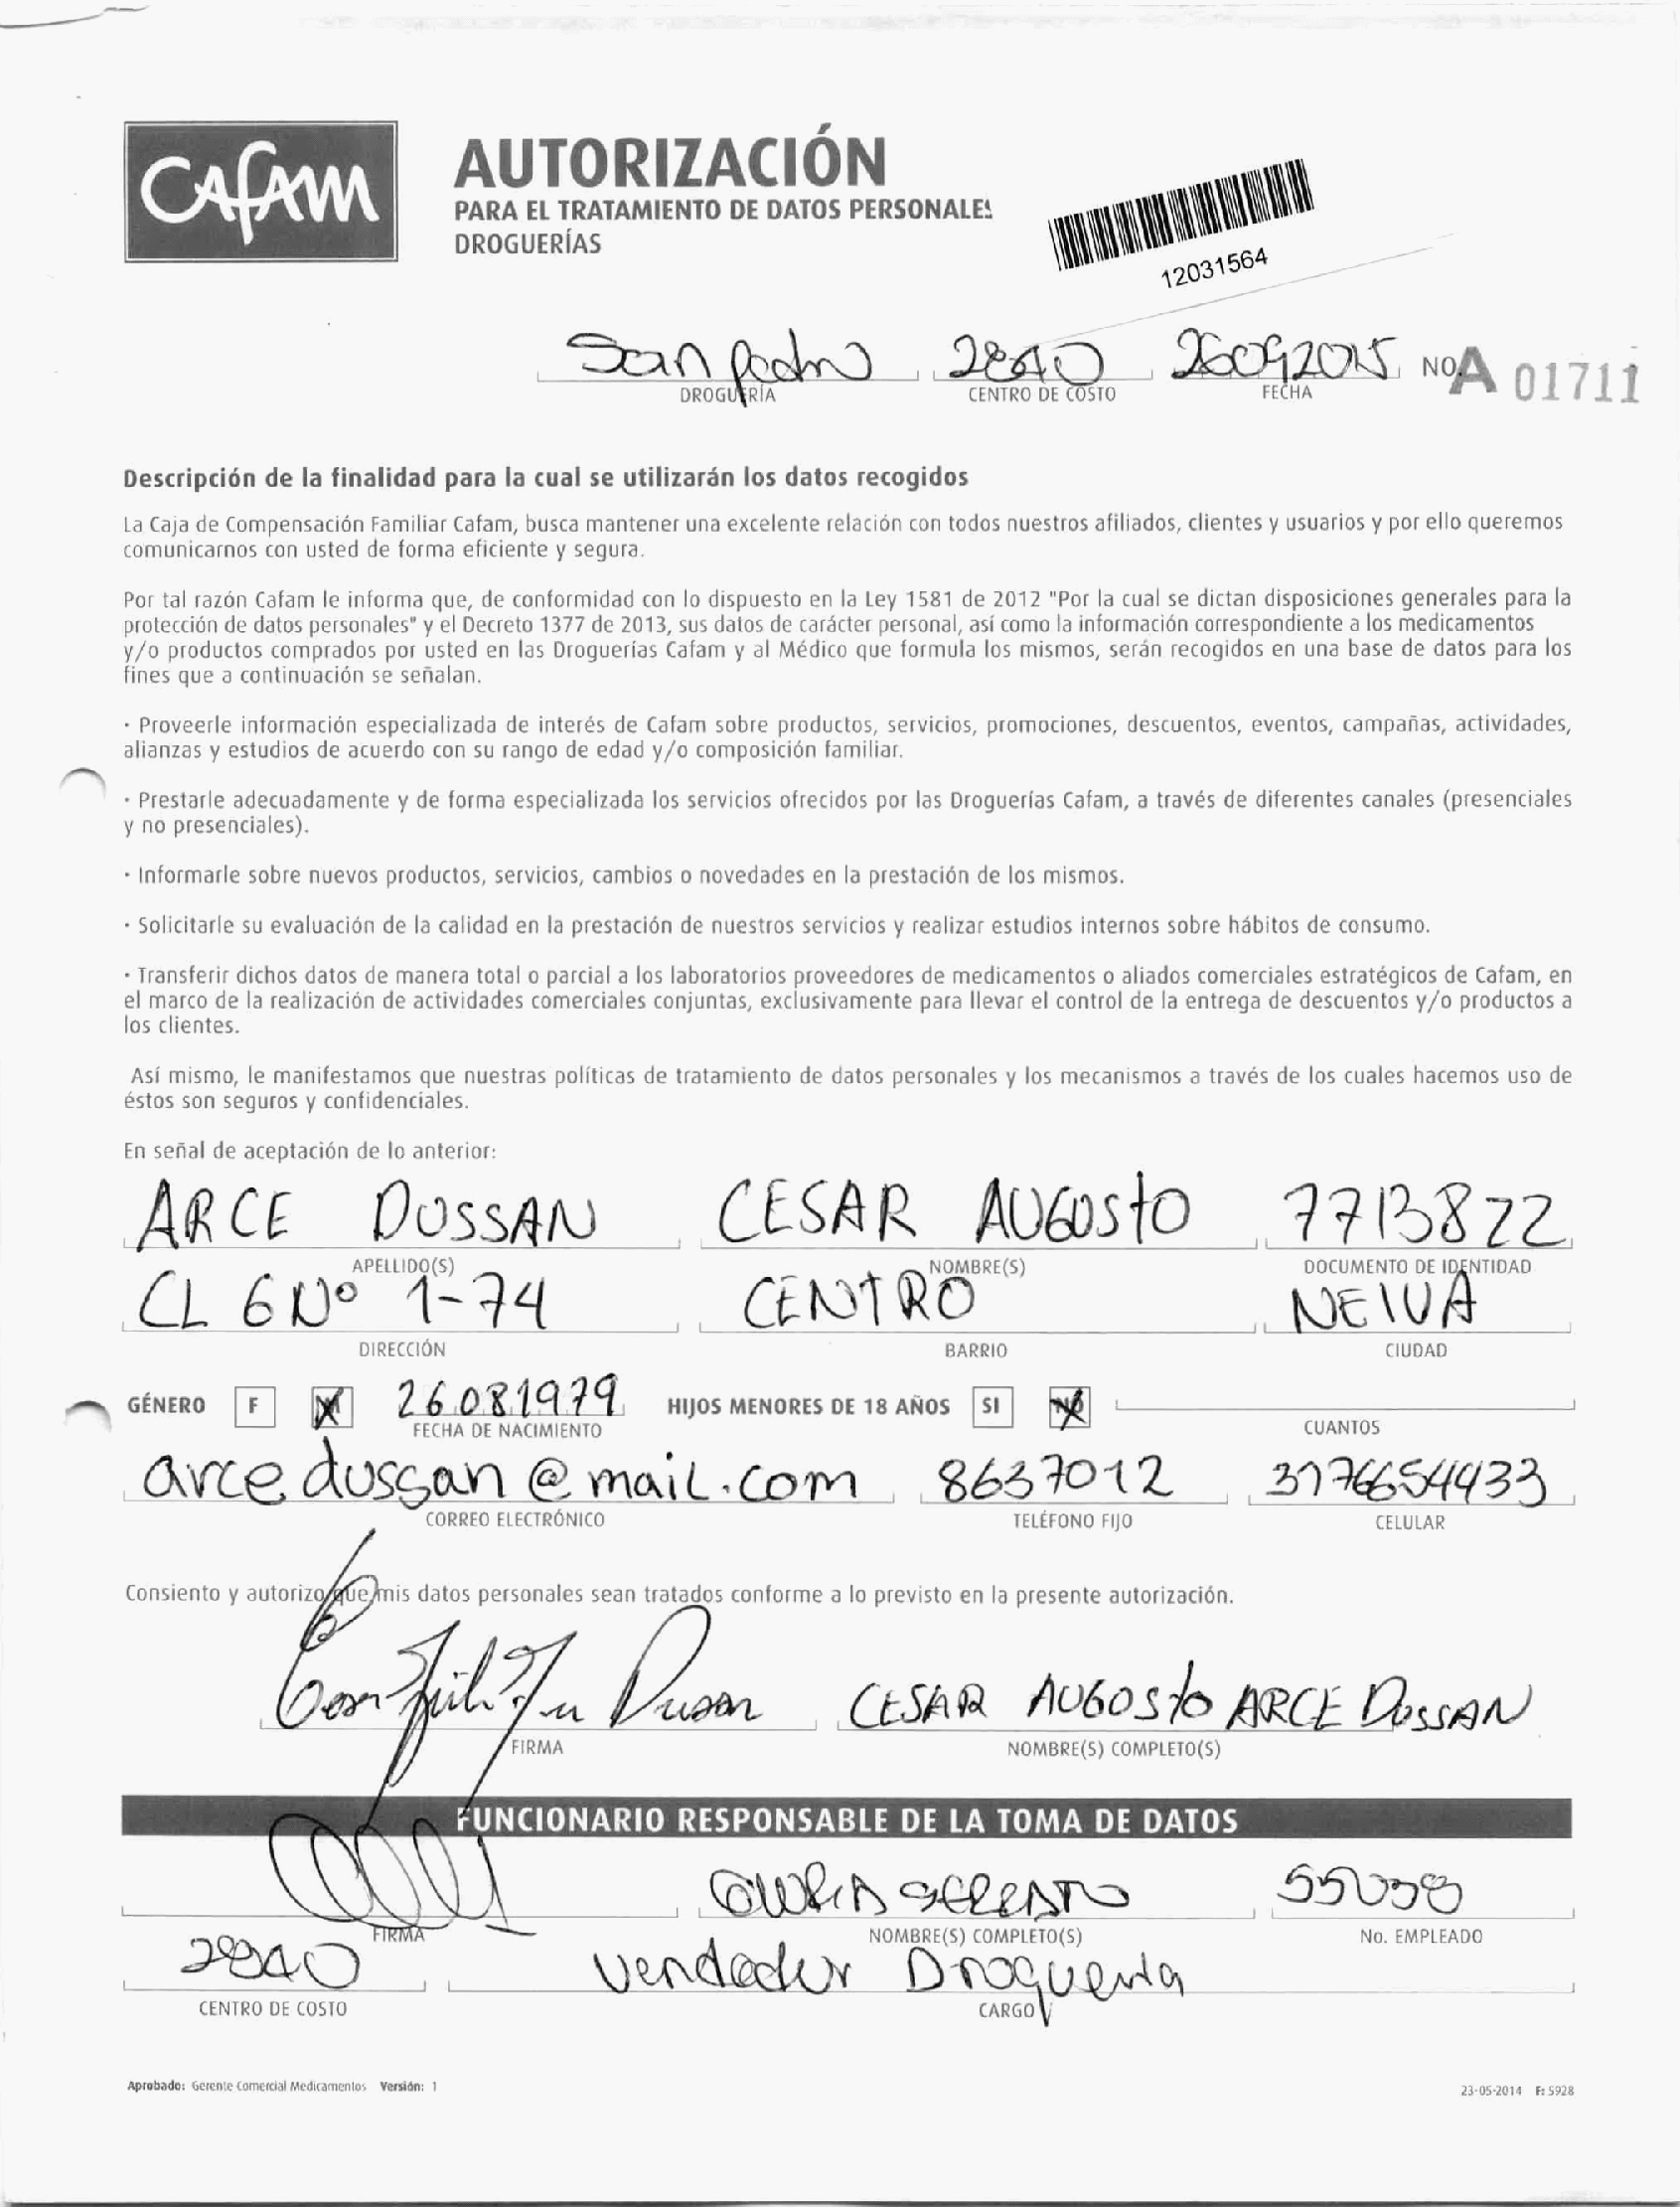 CAFAM
AUTORIZACIÓN
PARA EL TRATAMIENTO DE DATOS PERSONALES
DROGUERÍAS
12031564
San Pedro 2840 26092015 NO. A 01711
DROGUERÍA CENTRO DE COSTO FECHA
Descripción de la finalidad para la cual se utilizarán los datos recogidos
La Caja de Compensación Familiar Cafam, busca mantener una excelente relación con todos nuestros afiliados, clientes y usuarios y por ello queremos
comunicarnos con usted de forma eficiente y segura.
Por tal razón Cafam le informa que, de conformidad con lo dispuesto en la Ley 1581 de 2012 "Por la cual se dictan disposiciones generales para la
protección de datos personales" y el Decreto 1377 de 2013, sus datos de carácter personal, así como la información correspondiente a los medicamentos
y/o productos comprados por usted en las Droguerías Cafam y al Médico que formula los mismos, serán recogidos en una base de datos para los
fines que a continuación se señalan.
· Proveerle información especializada de interés de Cafam sobre productos, servicios, promociones, descuentos, eventos, campañas, actividades,
alianzas y estudios de acuerdo con su rango de edad y/o composición familiar.
· Prestarle adecuadamente y de forma especializada los servicios ofrecidos por las Droguerías Cafam, a través de diferentes canales (presenciales
y no presenciales).
· Informarle sobre nuevos productos, servicios, cambios o novedades en la prestación de los mismos.
· Solicitarle su evaluación de la calidad en la prestación de nuestros servicios y realizar estudios internos sobre hábitos de consumo.
· Transferir dichos datos de manera total o parcial a los laboratorios proveedores de medicamentos o aliados comerciales estratégicos de Cafam, en
el marco de la realización de actividades comerciales conjuntas, exclusivamente para llevar el control de la entrega de descuentos y/o productos a
los clientes.
Así mismo, le manifestamos que nuestras políticas de tratamiento de datos personales y los mecanismos a través de los cuales hacemos uso de
éstos son seguros y confidenciales.
En señal de aceptación de lo anterior:
ARCE DUSSAN CESAR AUGUSTO 7713822
APELLIDO(S) NOMBRE(S) DOCUMENTO DE IDENTIDAD
CL 6 Nº 1-74 CENTRO NEIVA
DIRECCIÓN BARRIO CIUDAD
GÉNERO F M 26081979 HIJOS MENORES DE 18 AÑOS SI NO
FECHA DE NACIMIENTO CUANTOS
arcedussan@mail.com 8637012 3176654433
CORREO ELECTRÓNICO TELÉFONO FIJO CELULAR
Consiento y autorizo que mis datos personales sean tratados conforme a lo previsto en la presente autorización.
Dussan CESAR AUGOSTO ARCE DUSSAN
FIRMA NOMBRE(S) COMPLETO(S)
FUNCIONARIO RESPONSABLE DE LA TOMA DE DATOS
55038
FIRMA NOMBRE(S) COMPLETO(S) No. EMPLEADO
2840 Vendedor Drogueria
CENTRO DE COSTO CARGO
Aprobado: Gerente Comercial Medicamentos Versión: 1
23-05-2014 F: 5928